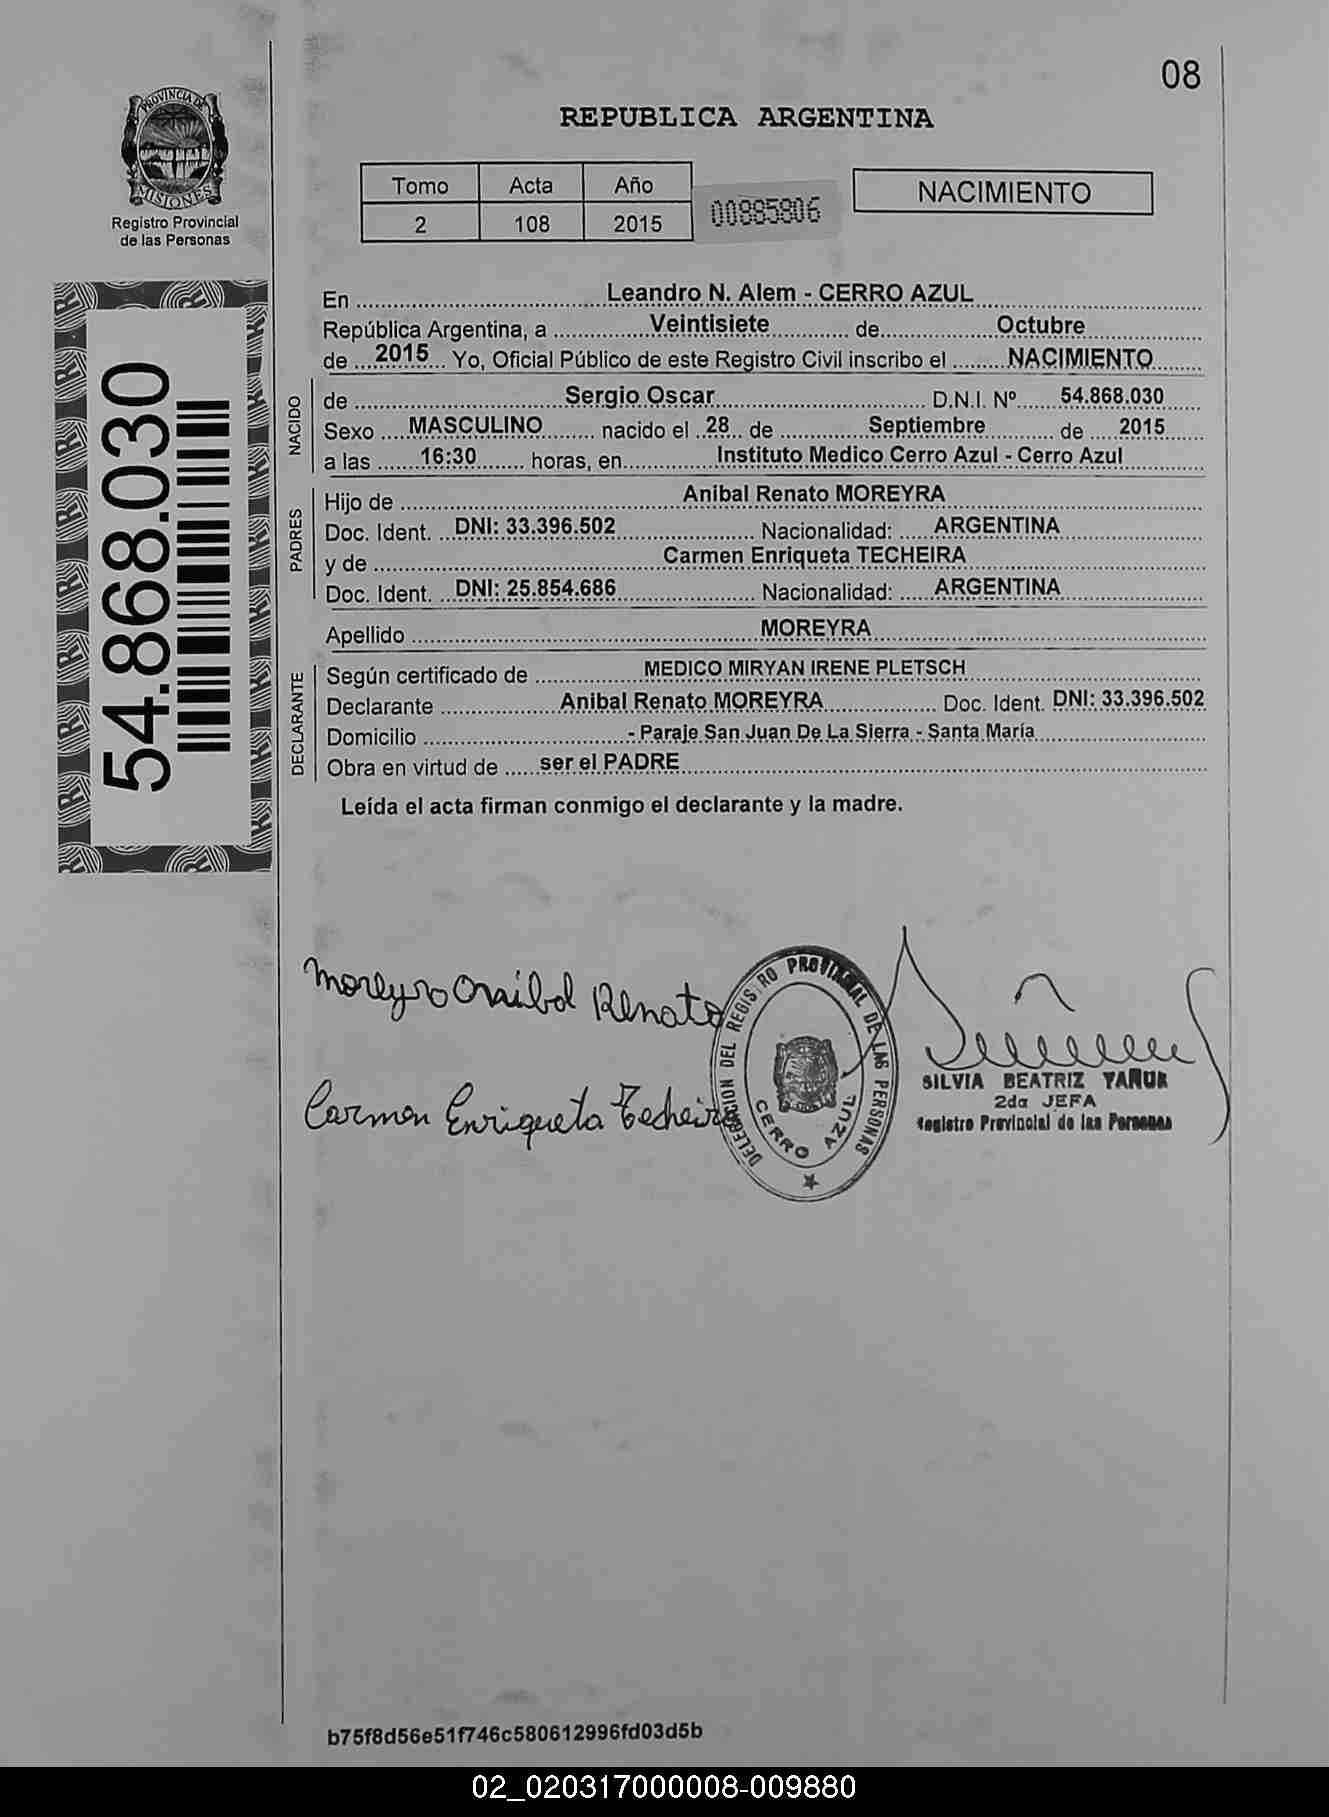 08
REPUBLICA ARGENTINA
PROVINCIA DE
MISIONES
Registro Provincial
de las Personas
Tomo Acta Año
2 108 2015
00885806
NACIMIENTO
54.868.030
En Leandro N. Alem - CERRO AZUL
República Argentina, a Veintisiete de Octubre
de 2015 Yo, Oficial Público de este Registro Civil inscribo el NACIMIENTO
NACIDO
de Sergio Oscar D.N.I. Nº 54.868.030
Sexo MASCULINO nacido el 28 de Septiembre de 2015
a las 16:30 horas, en Instituto Medico Cerro Azul - Cerro Azul
PADRES
Hijo de Anibal Renato MOREYRA
Doc. Ident. DNI: 33.396.502 Nacionalidad: ARGENTINA
y de Carmen Enriqueta TECHEIRA
Doc. Ident. DNI: 25.854.686 Nacionalidad: ARGENTINA
Apellido MOREYRA
DECLARANTE
Según certificado de MEDICO MIRYAN IRENE PLETSCH
Declarante Anibal Renato MOREYRA Doc. Ident. DNI: 33.396.502
Domicilio - Paraje San Juan De La Sierra - Santa María
Obra en virtud de ser el PADRE
Leída el acta firman conmigo el declarante y la madre.
Moreyra Anibal Renato
Carmen Enriqueta Techeira
DELEGACION DEL REGISTRO PROVINCIAL DE LAS PERSONAS
CERRO AZUL
SILVIA BEATRIZ YAÑUK
2da JEFA
Registro Provincial de las Personas
b75f8d56e51f746c580612996fd03d5b
02_020317000008-009880